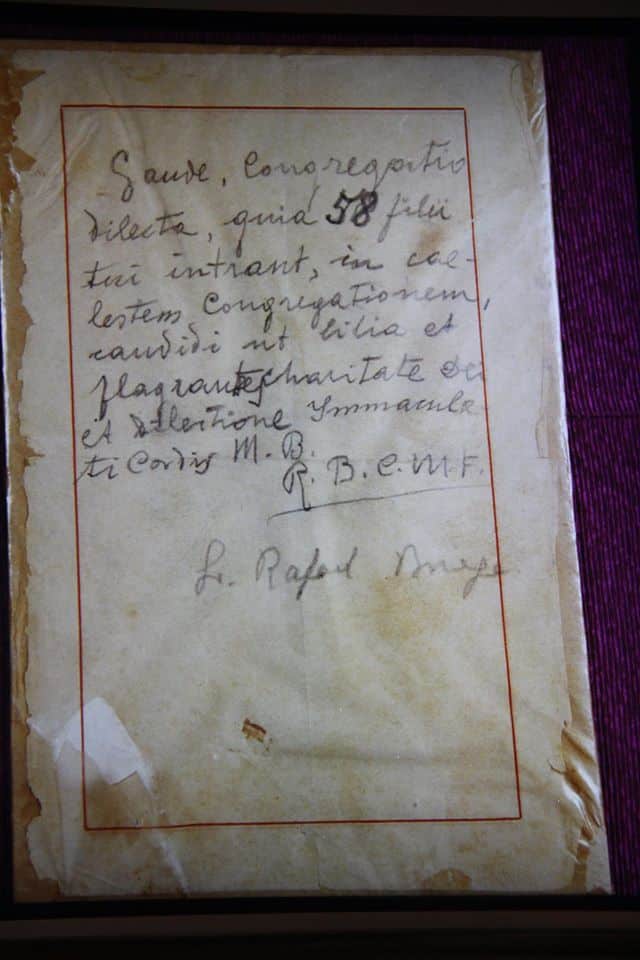 Gaude, Congregatio
dilecta, quia 58 filii
tui intrant, in cae-
lestem Congregationem,
candidi ut lilia et
flagrantes charitate Dei
et dilectione Immacula-
ti Cordis M. B.
R. B. C. M. F.
Rafael